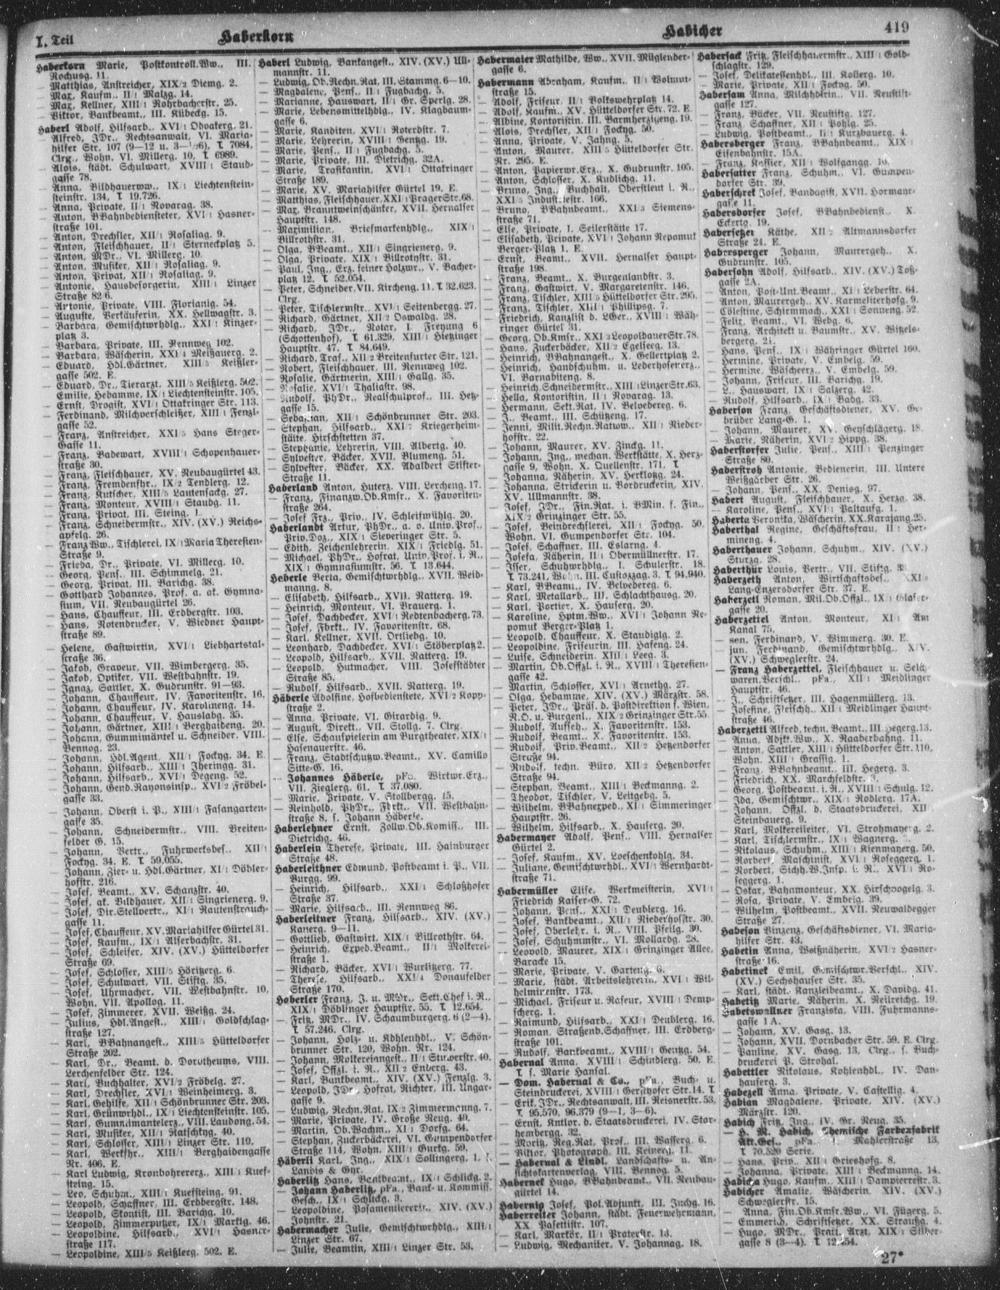 I. Teil
Haberkorn
Habicher
419
Haberkorn Marie, Postkontroll.Ww., III.
Rochusg. 11.
— Matthias, Anstreicher, XIX/2 Diemg. 2.
— Max, Kaufm., II/1 Malzg. 14.
— Max, Kellner, XIII/1 Rohrbacherstr. 25.
— Viktor, Bankbeamt., III. Kübeckg. 15.
Haberl Adolf, Hilfsarb., XVI/1 Odoaferg. 21.
— Alfred, JDr., Rechtsanwalt, VI. Maria-
hilfer Str. 107
Clrg., Wohn. VI. Millerg. 10, T 6989.
— Alois, städt. Schulwart, XVIII/3 Staud-
gasse 78.
— Anna, Bildhauersww., IX/1 Liechtenstein-
steinstr. 134, T 19.726.
— Anna, Private, II/1 Novarag. 38.
— Anton, BBahnbediensteter, XVI/1 Hasner-
straße 101.
— Anton, Drechsler, XII/1 Rosaliag. 9.
— Anton, Fleischhauer, II/1 Sterneckplatz 5.
— Anton, MDr., VI. Millerg. 10.
— Anton, Musiker, XII/1 Rosaliag. 9.
— Anton, Privat, XII/1 Rosaliag. 9.
— Antonie, Hausbesorgerin, XIII/1 Linzer
Straße 82
— Antonie, Private, VIII. Florianig. 54.
— Auguste, Verkäuferin, XX. Hellwagstr. 3.
— Barbara, Gemischtwrhdlg., XXI/1 Kinzer-
platz 3.
— Barbara, Private, III. Rennweg 102.
— Barbara, Wäscherin, XXI/1 Meißauerg. 2.
— Eduard, Hdl.Gärtner, XIII/5 Keißler-
gasse 502. E.
— Eduard, Dr., Tierarzt, XIII/5 Keißlerg. 502.
— Emilie, Hebamme, IX/1 Liechtensteinstr. 105.
— Ernst, Drogist, XVI/1 Ottakringer Str. 113.
— Ferdinand, Milchverschleißer, XIII/1 Fenzl-
gasse 52.
— Franz, Anstreicher, XXI/5 Hans Steger-
Gasse 11.
— Franz, Badewart, XVIII/1 Schopenhauer-
straße 30.
— Franz, Fleischhauer, XV. Neubaugürtel 43.
— Franz, Fremdenführ., IX/2 Tendlerg. 12.
— Franz, Kutscher, XIII/5 Lautensackg. 27.
— Franz, Monteur, XVIII/1 Staudg. 11.
— Franz, Privat, III. Steing. 1.
— Franz, Schneidermstr., XIV. (XV.) Reichs-
apfelg. 26.
— Franz Ww., Tischlerei, IX/1 Maria Theresien-
Straße 9.
— Frieda, Dr., Private, VI. Millerg. 10.
— Georg, Pens., III. Schimmelg. 21.
— Georg, Privat, III. Barichg. 38.
— Gotthard Johannes, Prof. a. ak. Gymna-
sium, VII. Neubaugürtel 26.
— Hans, Chauffeur, III. Erdbergstr. 103.
— Hans, Rotendrucker, V. Wiedner Haupt-
straße 89.
— Helene, Gastwirtin, XVI/1 Liebhartstal-
straße 36.
— Jakob, Graveur, VII. Wimbergerg. 35.
— Jakob, Optiker, VII. Westbahnstr. 19.
— Ignaz, Sattler, X. Gudrunstr. 91—93.
— Johann, Chauffeur, IV. Favoritenstr. 16.
— Johann, Chauffeur, IV. Karolineng. 14.
— Johann, Chauffeur, V. Hauslabg. 35.
— Johann, Gärtner, XIII/1 Berghaideng. 20.
— Johann, Gummimäntel u. Schneider, VIII.
Bennog. 23.
— Johann, Hdl.Agent, XII/1 Fockyg. 34. E.
— Johann, Hilfsarb., XIII/1 Jheringg. 31.
— Johann, Hilfsarb., XVI/1 Degeng. 52.
— Johann, Gend.Rayonsinsp., XVI/2 Fröbel-
gasse 33.
— Johann, Oberst i. P., XIII/1 Fasangarten-
gasse 35.
— Johann, Schneidermstr., VIII. Breiten-
felder G. 15.
— Johann, Vertr., Fuhrwerksbes., XII/1
Fockyg. 34. E. T 59.055.
— Johann, Zier- u. Hdl.Gärtner, XI/1 Döbler-
hofstr. 216.
— Josef, Beamt., XV. Schanzstr. 40.
— Josef, ak. Bildhauer, XII/1 Singrienerg. 9.
— Josef, Dir.Stellvertr., XI/1 Rautenstrauch-
gasse 11.
— Josef, Chauffeur, XV. Mariahilfer Gürtel 31.
— Josef, Kaufm., IX/1 Alserbachstr. 31.
— Josef, Schleifer, XIV. (XV.) Hütteldorfer
Straße 69.
— Josef, Schlosser, XIII/5 Höritzerg. 6.
— Josef, Schulwart, VII. Stiftg. 35.
— Josef, Uhrmacher, VII. Westbahnstr. 10,
Wohn. VII. Apollog. 11.
— Josef, Zimmerer, XVII. Weißg. 24.
— Julius, Hdl.Angest., XIII/1 Goldschlag-
straße 127.
— Karl, BBahnangest., XIII/5 Hütteldorfer
Straße 202.
— Karl, Dr., Beamt. d. Dorotheums, VIII.
Lerchenfelder Str. 124.
— Karl, Buchhalter, XVI/2 Fröbelg. 27.
— Karl, Drechsler, XVI/1 Weinheimerg. 3.
— Karl, Gehilfe, XII/1 Schönbrunner Str. 203.
— Karl, Grünwrhdl., IX/1 Liechtensteinstr. 105.
— Karl, Gummimantelerz., VIII. Laudong. 54.
— Karl, Musiker, XII/1 Ratschkyg. 40.
— Karl, Schlosser, XIII/1 Linzer Str. 119.
— Karl, Werkfhr., XIII/1 Berghaidengasse
Nr. 406. E.
— Karl Ludwig, Kronbohrererz., XIII/1 Kuef-
steing. 15.
— Leo, Schuhm., XIII/1 Kuefsteing. 91.
— Leopold, Schaffner, III. Erdbergstr. 148.
— Leopold, Skontist, III. Barichg. 10.
— Leopold, Zimmerputzer, IX/1 Marktg. 46.
— Leopoldine, Hilfsarb., XVI/1 Hasner-
straße 117.
— Leopoldine, XIII/5 Keißlerg. 502. E.
Haberl Ludwig, Bankangest., XIV. (XV.) Ull-
mannstr. 11.
— Ludwig, Ob.Rechn.Rat, III. Stammg. 6—10.
— Magdalene, Pens., II/1 Fugbachg. 5.
— Marianne, Hauswart, II/1 Gr. Sperlg. 28.
— Marie, Lebensmittelhdlg., IV. Klagbaum-
gasse 6.
— Marie, Kanditen, XVI/1 Roterdstr. 7.
— Marie, Lehrerin, XVIII/1 Semperg. 19.
— Marie, Pens., II/1 Fugbachg. 5.
— Marie, Private, III. Dietrichg. 32A.
— Marie, Trafikantin, XVI/1 Ottakringer
Straße 189.
— Marie, XV. Mariahilfer Gürtel 19. E.
— Matthias, Fleischhauer, XXI/1 Prager Str. 68.
— Max, Branntweinschänker, XVII. Hernalser
Hauptstr. 148.
— Maximilian, Briefmarkenhdlg., XIX/1
Billrothstr. 31.
— Olga, BBeamt., XII/1 Singrienerg. 9.
— Olga, Private, XIX/1 Billrothstr. 31.
— Paul, Ing., Erz. feiner Holzwr., V. Bacher-
platz 12. T 52.054.
— Peter, Schreiber, VII. Kircheng. 11. T 32.623.
Clrg.
— Peter, Tischlermstr., XVI/1 Seitenbergg. 27.
— Richard, Gärtner, XII/2 Oswaldg. 28.
— Richard, JDr., Notar, I. Freyung 6
(Schottenhof), T 61.329, XIII/1 Hietzinger
Hauptstr. 47, T 84.649.
— Richard, Traf., XII/2 Breitenfurter Str. 121.
— Robert, Fleischhauer, III. Rennweg 102.
— Rosalie, Gärtnerin, XIII/1 Gallg. 35.
— Rosalie, XVI/1 Thaliastr. 98.
— Rudolf, PhDr., Realschulprof., III. Hetz-
gasse 15.
— Sebastian, XII/1 Schönbrunner Str. 203.
— Stephan, Hilfsarb., XXI/2 Kriegerheim-
stätte, Hirschstetten 37.
— Stephanie, Lehrerin, VIII. Albertg. 40.
— Sylvester, Bäcker, XVII. Blumeng. 51.
— Sylvester, Bäcker, XX. Adalbert Stifter-
Straße 11.
Haberland Anton, Huterz., VIII. Lercheng. 17.
— Franz, Finanzw.Ob.Kmsr., X. Favoriten-
straße 264.
— Josef Frz., Priv., IV. Schleifmühlg. 20.
Haberlandt Artur, PhDr., a. o. Univ. Prof.,
Priv.Doz., XIX/1 Sieveringer Str. 5.
— Edith, Zeichenlehrerin, XIX/1 Friedlg. 51.
— Michael, PhDr., Hofrat, Univ. Prof. i. R.,
XIX/1 Gymnasiumstr. 56, T 13.644.
Heberle Berta, Gemischtwrhdlg., XVII. Weid-
manng. 8.
— Elisabeth, Hilfsarb., XVII. Natterg. 19.
— Heinrich, Monteur, VI. Brauerg. 1.
— Josef, Dachdecker, XVI/1 Redtenbacherg. 73.
— Josef, Fbrkt., IV. Favoritenstr. 68.
— Karl, Kellner, XVII. Ortliebg. 10.
— Leonhard, Dachdecker, XVI/1 Stöberplatz 2.
— Leopold, Hilfsarb., XVII. Natterg. 19.
— Leopold, Hutmacher, VIII. Josefstädter
Straße 85.
— Rudolf, Hilfsarb., XVII. Natterg. 19.
Häberle Adolfine, Hofbedienstete, XVI/2 Kopp-
straße 2.
— Anna, Private, VI. Girardig. 9.
— August, Direkt., VII. Stollg. 7. Clrg.
— Else, Schauspielerin am Burgtheater, XIX/1
Hasenauerstr. 46.
— Franz, Stadtschutzw.Beamt., XV. Camillo
Sitte-G. 16.
— Johannes Häberle, pFa., Wirkwr.Erz.,
VII. Zieglerg. 61. T 37.080.
— Marie, Private, V. Stollbergg. 15.
— Reinhold, PhDr., Fbrkt., VII. Westbahn-
straße 8, s. Johann Häberle.
Haberlehner Ernst, Zollw.Ob.Komiss., III.
Dietrichg. 46.
Haberlein Therese, Private, III. Hainburger
Straße 48.
Haberleithner Edmund, Postbeamt. i. P., VII.
Burgg. 99.
— Heinrich, Hilfsarb., XXI/1 Schloßhofer
Straße 37.
— Marie, Hilfsarb., III. Rennweg 86.
Haberleitner Franz, Hilfsarb., XIV. (XV.)
Kanerg. 9—11.
— Gottlieb, Gastwirt, XIX/1 Billrothstr. 64.
— Heinrich, Exped.Beamt., II/1 Molkerei-
straße 1.
— Richard, Bäcker, XVI/1 Wurlitzerg. 77.
— Therese, Hilfsarb., XXI/4 Donaufelder
Straße 170.
Haberler Franz, J. u. MDr., Sekt.Chef i. R.,
XIX/1 Döblinger Hauptstr. 55. T 12.654.
— Fritz, MDr., IV. Schaumburgerg. 6 (2—4).
T 57.246. Clrg.
— Johann, Holz- u. Kohlenhdl., V. Schön-
brunner Str. 120, Wohn. Nr. 124.
— Johann, Molkereiangest., II/1 Stuwerstr. 40.
— Josef, Offzl. i. R., XII/2 Enberg. 43.
— Karl, Bankbeamt., XIV. (XV.) Fenzlg. 3.
— Leopold, JDr., Hofrat, Richter, III. Ungar-
gasse 9.
— Ludwig, Rechn.Rat, IX/2 Zimmermanng. 7.
— Marie, Private, IV. Große Neug. 40.
— Martin, Ob.Wachm., XI/1 Dorfg. 64.
— Stephan, Zuckerbäckerei, VI. Gumpendorfer
Straße 114, Wohn. XIII/1 Gurkg. 59.
Häberli Karl, Ing., XIX/1 Sollingerg. 1. s.
Landis & Gyr.
Haberlitz Hans, Bankbeamt., IX/1 Schlickg. 2.
— Johann Haberlitz, pFa., Bank- u. Kommiss.
Gesch., IX/1 Schlickg. 3.
— Leopoldine, Posamentiererin, XIV. (XV.)
Johnstr. 21.
Habermacher Julie, Gemischtwrhdlg., XIII/1
Linzer Str. 67.
— Julie, Beamtin, XIII/1 Linzer Str. 53.
Habermaier Mathilde, Ww., XVII. Müglender-
gasse 6.
Habermann Abraham, Kaufm., II/1 Wolmut-
straße 15.
— Adolf, Friseur, II/1 Volkswehrplatz 14.
— Adolf, Kaufm., XV. Hütteldorfer Str. 72. E.
— Albine, Kontoristin, III. Barmherzigeng. 19.
— Alois, Drechsler, XII/1 Fockyg. 50.
— Anna, Private, V. Jahng. 5.
— Anton, Maurer, XIII/5 Hütteldorfer Str.
Nr. 295. E.
— Anton, Papierwr.Erz., X. Gudrunstr. 105.
— Anton, Schlosser, X. Kudlichg. 11.
— Bruno, Ing., Buchhalt., Oberstleut. i. R.,
XXI/5 Industriestr. 166.
— Bruno, BBahnbeamt., XXI/5 Siemens-
straße 71.
— Else, Private, I. Seilerstätte 17.
— Elisabeth, Private, XVI/1 Johann Nepomuk
Berger-Platz 1. E.
— Ernst, Beamt., XVII. Hernalser Haupt-
straße 198.
— Franz, Beamt., X. Burgenlandstr. 3.
— Franz, Gastwirt, V. Margaretenstr. 146.
— Franz, Tischler, XIII/5 Hütteldorfer Str. 295.
— Franz, Tischler, XII/1 Philippsg. 7.
— Friedrich, Kanzlist b. LGer., XVIII/1 Wäh-
ringer Gürtel 31.
— Georg, Ob.Kmsr., XXI/2 Leopoldauer Str. 78.
— Hans, Zuckerbäcker, XII/2 Egellerg. 13.
— Heinrich, BBahnangest., X. Gellertplatz 2.
— Heinrich, Handschuhm. u. Lederhoserz.,
VI. Barnabiteng. 8.
— Heinrich, Schneidermstr., XIII/1 Linzer Str. 63.
— Hella, Kontoristin, II/1 Novarag. 13.
— Hermann, Sekt.Rat, IV. Belvedereg. 6.
— J., Beamt., III. Schützeng. 17.
— Jenni, Milit.Rechn.Ratsww., XII/1 Nieder-
hofstr. 22.
— Johann, Maurer, XV. Zinckg. 11.
— Johann, Ing., mechan. Werkstätte, X. Herz-
gasse 9, Wohn. X. Quellenstr. 171. T
— Johanna, Näherin, XV. Herklotzg. 24.
— Johanna, Strickerin u. Vordruckerin, XIV.
XV. Ullmannstr. 38.
— Josef, JDr., Fin.Rat i. BMin. f. Fin.,
XIX/2 Grinzinger Str. 55.
— Josef, Beindrechslerei, XII/1 Fockyg. 50,
Wohn. VI. Gumpendorfer Str. 104.
— Josef, Schaffner, III. Eslarng. 4.
— Josefa, Näherin, II/1 Obermüllnerstr. 17.
— Isser, Schuhwrhdlr., I. Schulerstr. 18.
T 73.241, Wohn. III. Custozzag. 3. T 94.940.
— Karl, BBeamt., I. Selvedereg. 6.
— Karl, Metallarb., III. Schlachthausg. 20.
— Karl, Portier, X. Hauserg. 20.
— Karoline, Hptm.Ww., XVI/1 Johann Ne-
pomuk Berger-Platz 1.
— Leopold, Chauffeur, X. Staudiglg. 2.
— Leopoldine, Friseurin, III. Hafeng. 24.
— Luise, Schneiderin, XIII/1 Leeg. 3.
— Martin, Ob.Offzl. i. R., XVIII/1 Theresien-
gasse 42.
— Martin, Schlosser, XVI/1 Arnethg. 27.
— Olga, Hebamme, XIV. (XV.) Märzstr. 58.
— Peter, JDr., Präs. d. Postdirektion f. Wien,
N.O. u. Burgenl., XIX/2 Grinzinger Str. 55.
— Rudolf, Aufseh., X. Favoritenstr. 153.
— Rudolf, Beamt., X. Favoritenstr. 153.
— Rudolf, Priv.Beamt., XII/2 Hetzendorfer
Straße 94.
— Rudolf, techn. Büro, XII/2 Hetzendorfer
Straße 94.
— Stephan, Beamt., XIII/1 Beckmanng. 2.
— Theodor, Tischler, V. Leitgebg. 5.
— Wilhelm, BBahnexped., XI/1 Simmeringer
Hauptstr. 26.
— Wilhelm, Hilfsarb., X. Hauserg. 20.
Habermayer Adolf, Pens., VIII. Hernalser
Gürtel 2.
— Josef, Kaufm., XV. Loeschenkohlg. 34.
— Juliane, Geschäftsinh., XVI/1 Wernhardt-
straße 71.
Habermüller Elise, Werkmeisterin, XVI/1
Friedrich Kaiser-G. 72.
— Johann, Pens., XXI/1 Deublerg. 16.
— Josef, Bankbeamt., XII/1 Niederhofstr. 30.
— Josef, Oberlehr. i. R., VIII. Pfeilg. 30.
— Josef, Schuhmmstr., VI. Mollardg. 28.
— Leopold, Maurer, XIX/1 Grinzinger Allee,
Baracke 15.
— Marie, Private, V. Garteng. 6.
— Marie, städt. Arbeitslehrerin, XVI/1 Wil-
helminenstr. 173.
— Michael, Friseur u. Raseur, XVIII/1 Demp-
scherg. 1.
— Raimund, Hilfsarb., XXI/1 Deublerg. 16.
— Roman, Straßenb.Schaffner, III. Erdberg-
straße 101.
— Rudolf, Bankbeamt., XVIII/1 Gentzg. 54.
Habernal Anna, XVIII/1 Schindlerg. 50. E.
T s. Marie Hansal.
— Dom. Habernal & Co., pFa., Buch- u.
Steindruckerei, XVIII/1 Gersthofer Str. 14. T
— Erik, JDr., Rechtsanwalt, III. Reisnerstr. 53.
T 95.570, 96.379 (9—1, 3—6).
— Ernst, Kntlor. d. Staatsdruckerei, IV. Star-
hembergg. 32.
— Moritz, Reg.Rat, Prof., III. Wasserg. 6.
— Viktor, Photograph, III. Keinerg. 11.
— Habernal & Lindl, Landschafts- u. An-
sichtskartenverlag, VIII. Bennog. 5.
Habernek Hugo, BBahnbeamt., VII. Neubau-
gürtel 14.
Habernig Josef, Pol.Adjunkt, III. Juchg. 16.
Haberreiter Johann, städt. Feuerwehrmann,
XX. Pasettistr. 107.
— Karl, Markör, II/1 Praterstr. 13.
— Ludwig, Mechaniker, V. Johannag. 18.
Habersack Fritz, Fleischhauermstr., XIII/1 Gold-
schlagstr. 129.
— Josef, Delikatessenhdl., III. Kollerg. 10.
— Marie, Private, XII/1 Fockyg. 50.
Habersam Anna, Milchhdlerin., VII. Neustift-
gasse 127.
— Franz, Bäcker, VII. Neustiftg. 127.
— Franz, Schaffner, XII/1 Pohlg. 25.
— Ludwig, Postbeamt., II/1 Kurzbauerg. 4.
Habersberger Franz, BBahnbeamt., XIX/1
Eisenbahnstr. 15A.
— Franz, Kassier, XII/1 Wolfgangg. 10.
Habersatter Franz, Schuhm., VI. Gumpen-
dorfer Str. 39.
Haberschrek Josef, Bandagist, XVII. Hormayr-
gasse 11.
Habersdorfer Josef, BBahnbedienst., X.
Eckertg. 19.
Habersetzer Käthe, XII/2 Altmannsdorfer
Straße 21. E.
Habersperger Johann, Maurergeh., X.
Gudrunstr. 105.
Habersohn Adolf, Hilfsarb., XIV. (XV.) Toß-
gasse 2A.
— Anton, Post-Unt.Beamt., XI/1 Leberstr. 64.
— Anton, Maurergeh., XV. Karmeliterhofg. 9.
— Cölestine, Schirmmach., XXI/1 Sonneng. 52.
— Felix, Beamt., VI. Webg. 6.
— Franz, Architekt u. Baumstr., XV. Witzels-
bergerg. 21.
— Hans, Pens., IX/1 Währinger Gürtel 160.
— Hermine, Private, V. Embelg. 59.
— Hermine, Wäscheerz., V. Embelg. 59.
— Johann, Friseur, III. Barichg. 19.
— L., Hauswart, IX/1 Salzerg. 42.
— Rudolf, Hilfsarb., IX/1 Badg. 33.
Haberson Franz, Geschäftsdiener, XV. Ge-
brüder Lang-G. 1.
— Johann, Maurer, XV. Gerschlägerg. 18.
— Marie, Näherin, XVI/2 Hippg. 38.
Haberstorfer Julie, Pens., XIII/1 Penzinger
Straße 80.
Haberstroh Antonie, Bedienerin, III. Untere
Weißgärber Str. 26.
— Johann, Pens., XX. Denisg. 97.
Habert August, Fleischhauer, X. Herzg. 38.
— Karoline, Pens., XVI/1 Paltaufg. 1.
Haberta Veronika, Wäscherin, XX. Karajang. 25.
Haberthal Regine, Geschäftsfrau, II/1 Her-
mineng. 4.
Haberthauer Johann, Schuhm., XIV. (XV.)
Sturzg. 28.
Haberthür Louis, Vertr., VII. Stiftg. 3.
Haberzeth Anton, Wirtschaftsbes., XXI/5
Lang-Enzersdorfer Str. 37. E.
Haberzetl Roman, Mil.Ob.Offzl., IX/1 Glaser-
gasse 20.
Haberzettel Anton, Monteur, XI/1 Am
Kanal 75.
— sen. Ferdinand, V. Wimmerg. 30. E.
— jun. Ferdinand, Gemischtwrhdlg., XIV.
(XV.) Schweglerstr. 24.
— Franz Haberzettel, Fleischhauer u. Selch-
waren.Verschl., pFa., XII/1 Meidlinger
Hauptstr. 46.
— J., Schriftsetzer, III. Hagenmüllerg. 13.
— Josefine, Fleischh., XII/1 Meidlinger Haupt-
straße 46.
Haberzettl Alfred, techn. Beamt., III. Hegerg. 13.
— Anna, Adjkt.Ww., X. Raaberbahng. 11.
— Anton, Sattler, XIII/1 Hütteldorfer Str. 110,
Wohn. XIII/1 Grassig. 1.
— Franz, BBahnbeamt., III. Hegerg. 3.
— Friedrich, XX. Marchfeldstr.
— Georg, Postbeamt. i. R., XVIII/1 Schulg. 12.
— Ida, Gemischtwr., XIX/1 Rodlerg. 17A.
— Johann, Offzl. d. Staatsdruckerei, XII
Steinbauerg. 9.
— Karl, Molkereileiter, VI. Strohmayerg. 2.
— Karl, Tischlermstr., IX/1 Wagnerg. 2.
— Nikolaus, Schuhm., XIII/1 Kienmayerg. 50.
— Norbert, Maschinist, XVI/1 Roseggerg. 1.
— Norbert, Sich.W.Insp. i. R., XVI/1 Ro-
seggerg. 1.
— Oskar, Bahnmonteur, XX. Hirschvogelg. 3.
— Rosa, Private, V. Embelg. 39.
— Wilhelm, Postbeamt., XVII. Neuwaldegger
Straße 27.
Habeson Vinzenz, Geschäftsdiener, VI. Maria-
hilfer Str. 43.
Habetin Anna, Weißnäherin, XVI/2 Hasner-
straße 16.
Habetinek Emil, Gemischtwr.Verschl., XIV.
(XV.) Sechshauser Str. 35.
— Karl, städt. Kanzleibeamt., X. Davidg. 41.
Habetitz Marie, Näherin, X. Neilreichg. 19.
Habetswallner Franziska, VIII. Fuhrmanns-
gasse 1A.
— Johann, XV. Gasg. 13.
— Johann, XVII. Dornbacher Str. 59. E. Clrg.
— Pauline, XV. Gasg. 13, Clrg., s. Buch-
druckerei P. Strohal.
Habettler Nikolaus, Kohlenhdl., IV. Dan-
hauserg. 3.
Habezell Anna, Private, V. Castellig. 4.
Habian Magdalene, Private, XIV. (XV.)
Märzstr. 120.
Habich Fritz, Ing., IV. Gr. Neug. 35.
— H. R. Habich, Chemische Farbenfabrik
Akt.Ges., pFa., I. Mahlerstraße 13.
T 70.520 Serie.
— Hans, Priv., XII/1 Grieshofg. 8.
— Johann, Private, XIII/1 Beckmanng. 14.
Habicha Hugo, Kaufm., XIII/1 Dampierrestr. 3.
Habicher Amalie, Wäscherin, XIV. (XV.)
Schweglerstr. 15.
— Anna, Fin.Ob.Kmsr.Ww., VI. Fügerg. 5.
— Emmerich, Schriftsetzer, XX. Straußg. 4.
— Hugo, MDr., Prakt. Arzt, XIX/1 Silber-
gasse 8 (3—4). T 12.454.
27*